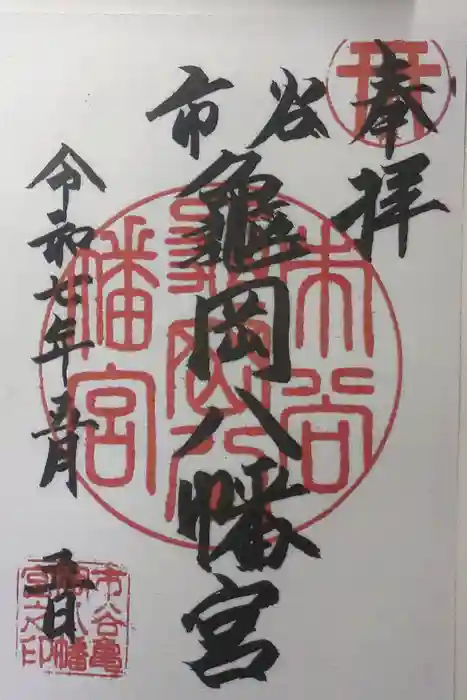 奉拝
市谷
龜岡八幡宮
令和七年五月 日
市谷亀岡八幡宮
市谷亀岡八幡宮之印